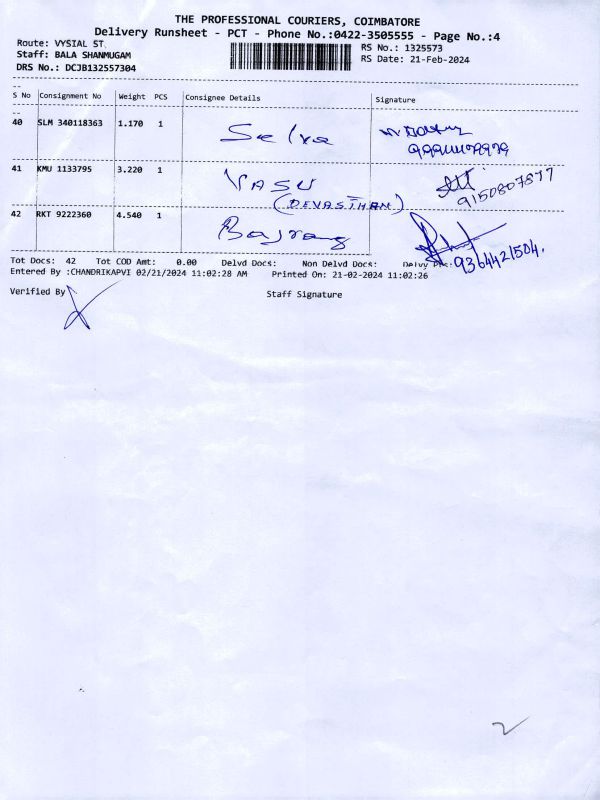 THE PROFESSIONAL COURIERS, COIMBATORE
Delivery Runsheet - PCT - Phone No.:0422-3505555 - Page No.:4
Route: VYSIAL ST.
Staff: BALA SHANMUGAM
DRS No.: DCJB132557304
RS No.: 1325573
RS Date: 21-Feb-2024
S No Consignment No Weight PCS Consignee Details Signature
40 SLM 340118363 1.170 1 Selva
41 KMU 1133795 3.220 1 VASU
(DEVASTHAN) 9150807877
42 RKT 9222360 4.540 1 Bajrang
9364421504.
Tot Docs: 42 Tot COD Amt: 0.00 Delvd Docs: Non Delvd Docs:
Entered By :CHANDRIKAPVI 02/21/2024 11:02:28 AM Printed On: 21-02-2024 11:02:26
Verified By Staff Signature